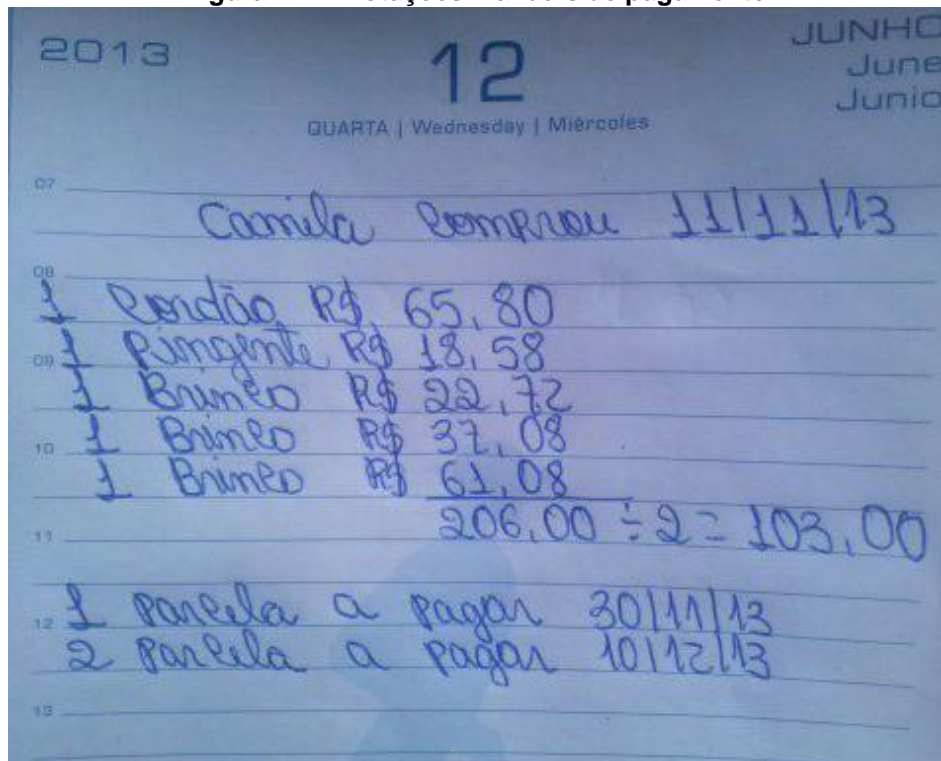 2013
12
JUNHO
June
Junio
QUARTA | Wednesday | Miércoles
07
Camila Comprou 11/11/13
08
1 Cordão R$ 65,80
1 Pingente R$ 18,58
09
1 Brinco R$ 22,72
1 Brinco R$ 37,08
10
1 Brinco R$ 61,08
206,00 ÷ 2 = 103,00
11
1 parcela a pagar 30/11/13
12
2 parcela a pagar 10/12/13
13